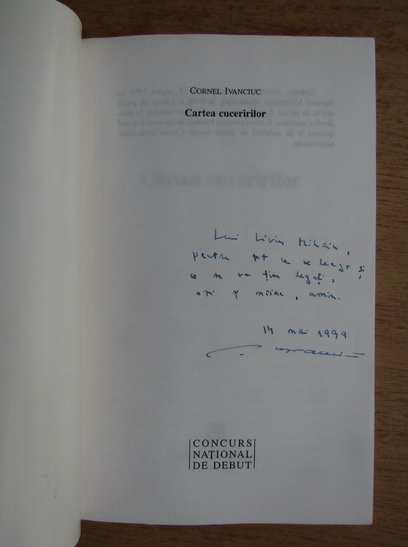 CORNEL IVANCIUC
Cartea cuceririlor
Lui Liviu Mihaiu,
pentru tot ce ne leagă și
ce ne va ține legați,
azi și mâine, amin.
14 mai 1999
CONCURS
NAȚIONAL
DE DEBUT